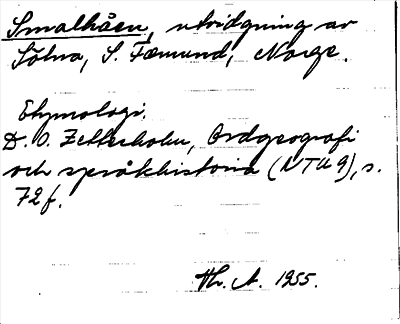 Smalhåen, utvidgning av
Sölna, S. Fæmund, Norge.
Etymologi.
D. O. Zetterholm, Ordgeografi
och språkhistoria (NTU 9), s.
72 f.
Hr. A. 1955.